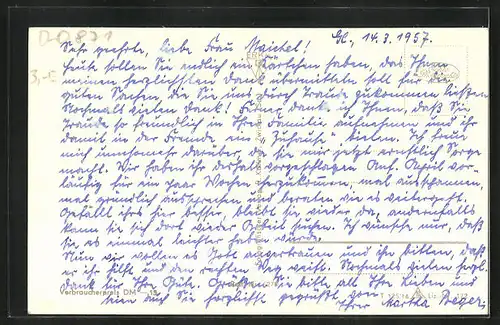 DD831
3,-E
Gl., 14.3.1957.
Sehr geehrte, liebe Frau Maichel!
Heute sollen Sie endlich ein Kärtchen haben, das Ihnen
meinen herzlichsten Dank übermitteln soll für die
guten Sachen die Sie uns durch Traude zukommen ließen.
Nochmals vielen Dank! Ferner dank ich Ihnen, daß Sie
Traude so freundlich in Ihre Familie aufnehmen und ihr
damit in der Fremde ein "Zuhause" bieten. Ich freu
mich umsomehr darüber, da sie mir jetzt ernstlich Sorge
macht. Wir haben ihr deshalb vorgeschlagen Anf. April vor-
läufig für ein paar Wochen herzukommen, mal ausspannen,
mal gründlich aussprechen und beraten wie es weitergeht.
Gefällt ihrs hier besser, bleibt sie wieder da, andernfalls
kann sie sich dort wieder Arbeit suchen. Ich wünsche nur, daß
sie es einmal leichter haben würde.
Nun wir wollen es Gott anvertrauen und ihn bitten, daß
er ihr hilft und den rechten Weg weist. Nochmals vielen herzl.
Dank für Ihre Güte. Grüßen Sie bitte all Ihre Lieben und
seien auch Sie herzlichst gegrüßt von
Ihrer Martha Beger
Verbraucherpreis DM -,15